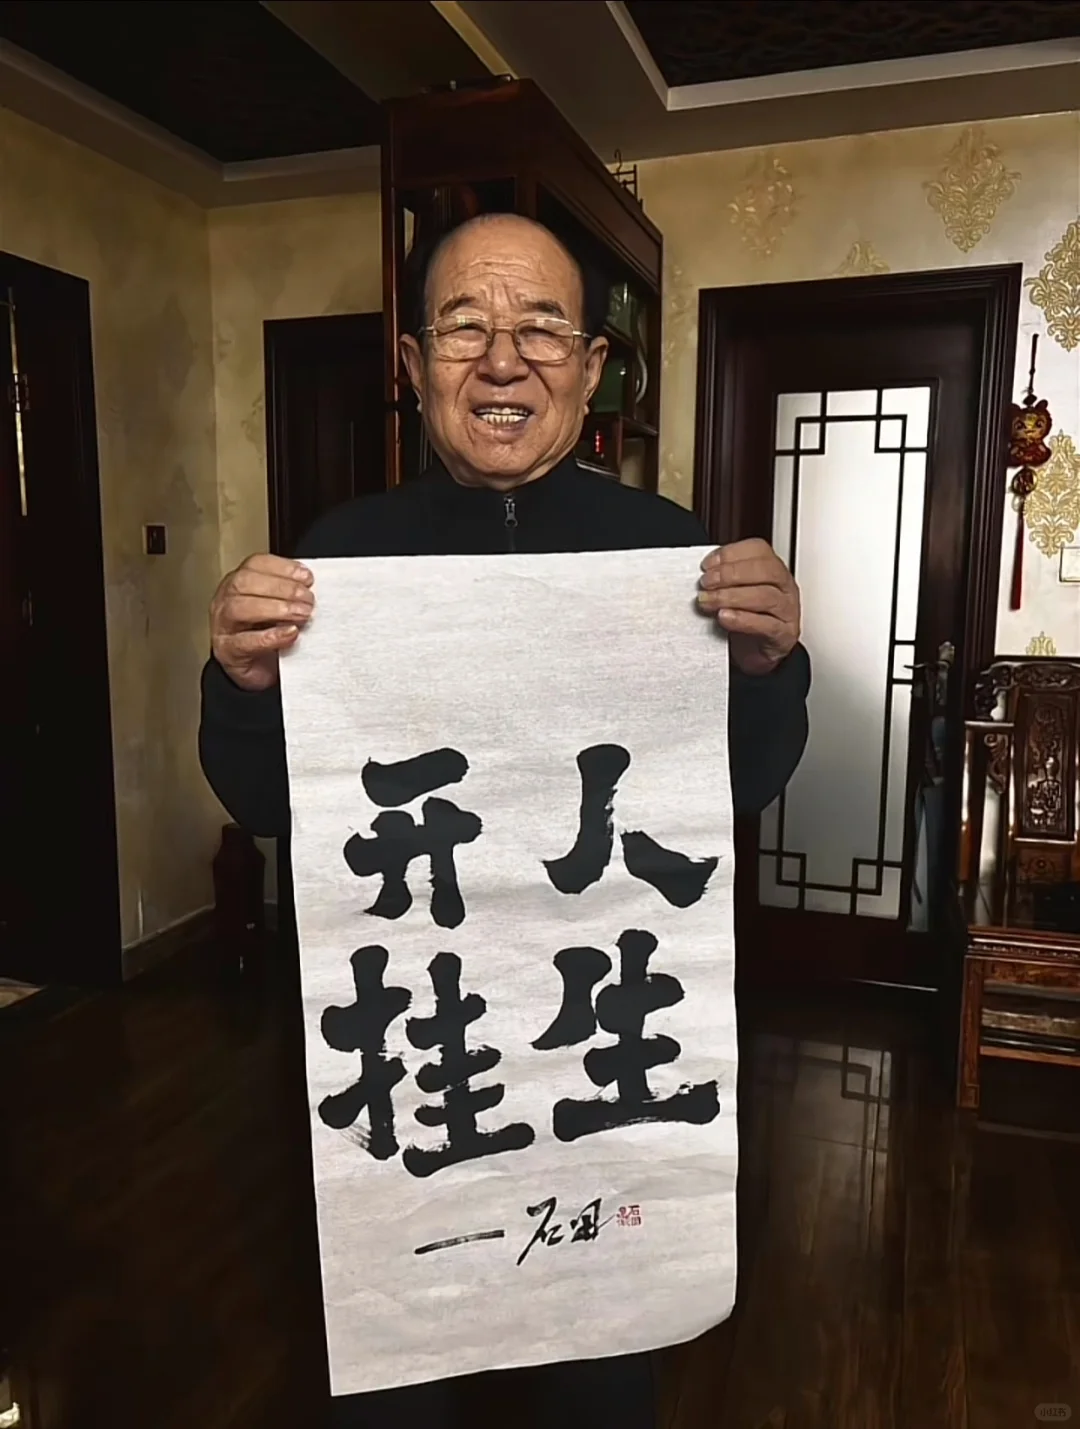 人生
开挂
一石田
小红书